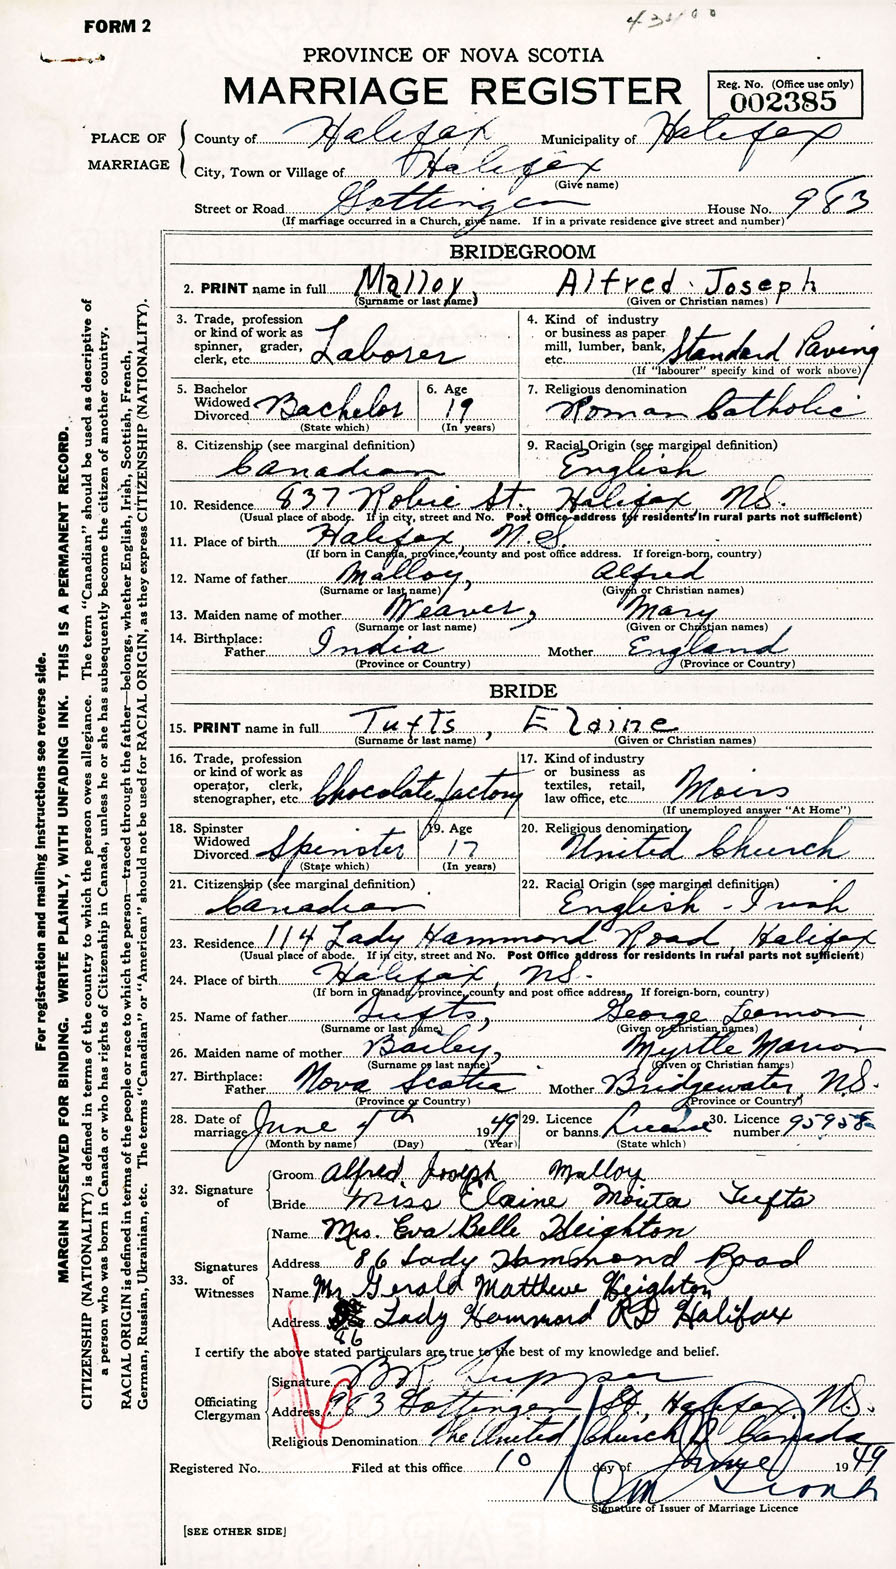 FORM 2
43400
PROVINCE OF NOVA SCOTIA
MARRIAGE REGISTER
Reg. No. (Office use only)
002385
PLACE OF MARRIAGE
County of Halifax Municipality of Halifax
City, Town or Village of Halifax
(Give name)
Street or Road Gottingen House No. 983
(If marriage occurred in a Church, give name. If in a private residence give street and number)
BRIDEGROOM
2. PRINT name in full Malloy, Alfred Joseph
(Surname or last name) (Given or Christian names)
3. Trade, profession or kind of work as spinner, grader, clerk, etc. Laborer
4. Kind of industry or business as paper mill, lumber, bank, etc. Standard Paving
(If "labourer" specify kind of work above)
5. Bachelor Widowed Divorced Bachelor
(State which)
6. Age 19
(In years)
7. Religious denomination
Roman Catholic
8. Citizenship (see marginal definition)
Canadian
9. Racial Origin (see marginal definition)
English
10. Residence 837 Robie St, Halifax, N.S.
(Usual place of abode. If in city, street and No. Post Office address for residents in rural parts not sufficient)
11. Place of birth Halifax N.S.
(If born in Canada, province, county and post office address. If foreign-born, country)
12. Name of father Malloy, Alfred
(Surname or last name) (Given or Christian names)
13. Maiden name of mother Weaver, Mary
(Surname or last name) (Given or Christian names)
14. Birthplace:
Father India Mother England
(Province or Country) (Province or Country)
BRIDE
15. PRINT name in full Tufts, Elaine
(Surname or last name) (Given or Christian names)
16. Trade, profession or kind of work as operator, clerk, stenographer, etc. Chocolate factory
17. Kind of industry or business as textiles, retail, law office, etc. Moirs
(If unemployed answer "At Home")
18. Spinster Widowed Divorced Spinster
(State which)
19. Age 17
(In years)
20. Religious denomination
United Church
21. Citizenship (see marginal definition)
Canadian
22. Racial Origin (see marginal definition)
English - Irish
23. Residence 114 Lady Hammond Road, Halifax
(Usual place of abode. If in city, street and No. Post Office address for residents in rural parts not sufficient)
24. Place of birth Halifax, N.S.
(If born in Canada, province, county and post office address. If foreign-born, country)
25. Name of father Tufts, George Leamon
(Surname or last name) (Given or Christian names)
26. Maiden name of mother Bailey, Myrtle Marion
(Surname or last name) (Given or Christian names)
27. Birthplace:
Father Nova Scotia Mother Bridgewater, N.S.
(Province or Country) (Province or Country)
28. Date of marriage June 7th 1949
(Month by name) (Day) (Year)
29. Licence or banns License
(State which)
30. Licence number 95958
32. Signature of
Groom Alfred Joseph Malloy
Bride Miss Elaine Monta Tufts
33. Signatures of Witnesses
Name Mrs. Eva Belle Heighton
Address 86 Lady Hammond Road
Name Mr Gerald Matthew Heighton
Address 86 Lady Hammond RD Halifax
I certify the above stated particulars are true to the best of my knowledge and belief.
Officiating Clergyman
Signature Tupper
Address 983 Gottingen St, Halifax N.S.
Religious Denomination The United Church of Canada
Registered No. Filed at this office 10 day of June 1949
Signature of Issuer of Marriage Licence
[SEE OTHER SIDE]
For registration and mailing instructions see reverse side.
MARGIN RESERVED FOR BINDING. WRITE PLAINLY, WITH UNFADING INK. THIS IS A PERMANENT RECORD.
CITIZENSHIP (NATIONALITY) is defined in terms of the country to which the person owes allegiance. The term "Canadian" should be used as descriptive of
a person who was born in Canada or who has rights of Citizenship in Canada, unless he or she has subsequently become the citizen of another country.
RACIAL ORIGIN is defined in terms of the people or race to which the person—traced through the father—belongs, whether English, Irish, Scottish, French,
German, Russian, Ukrainian, etc. The terms "Canadian" or "American" should not be used for RACIAL ORIGIN, as they express CITIZENSHIP (NATIONALITY).